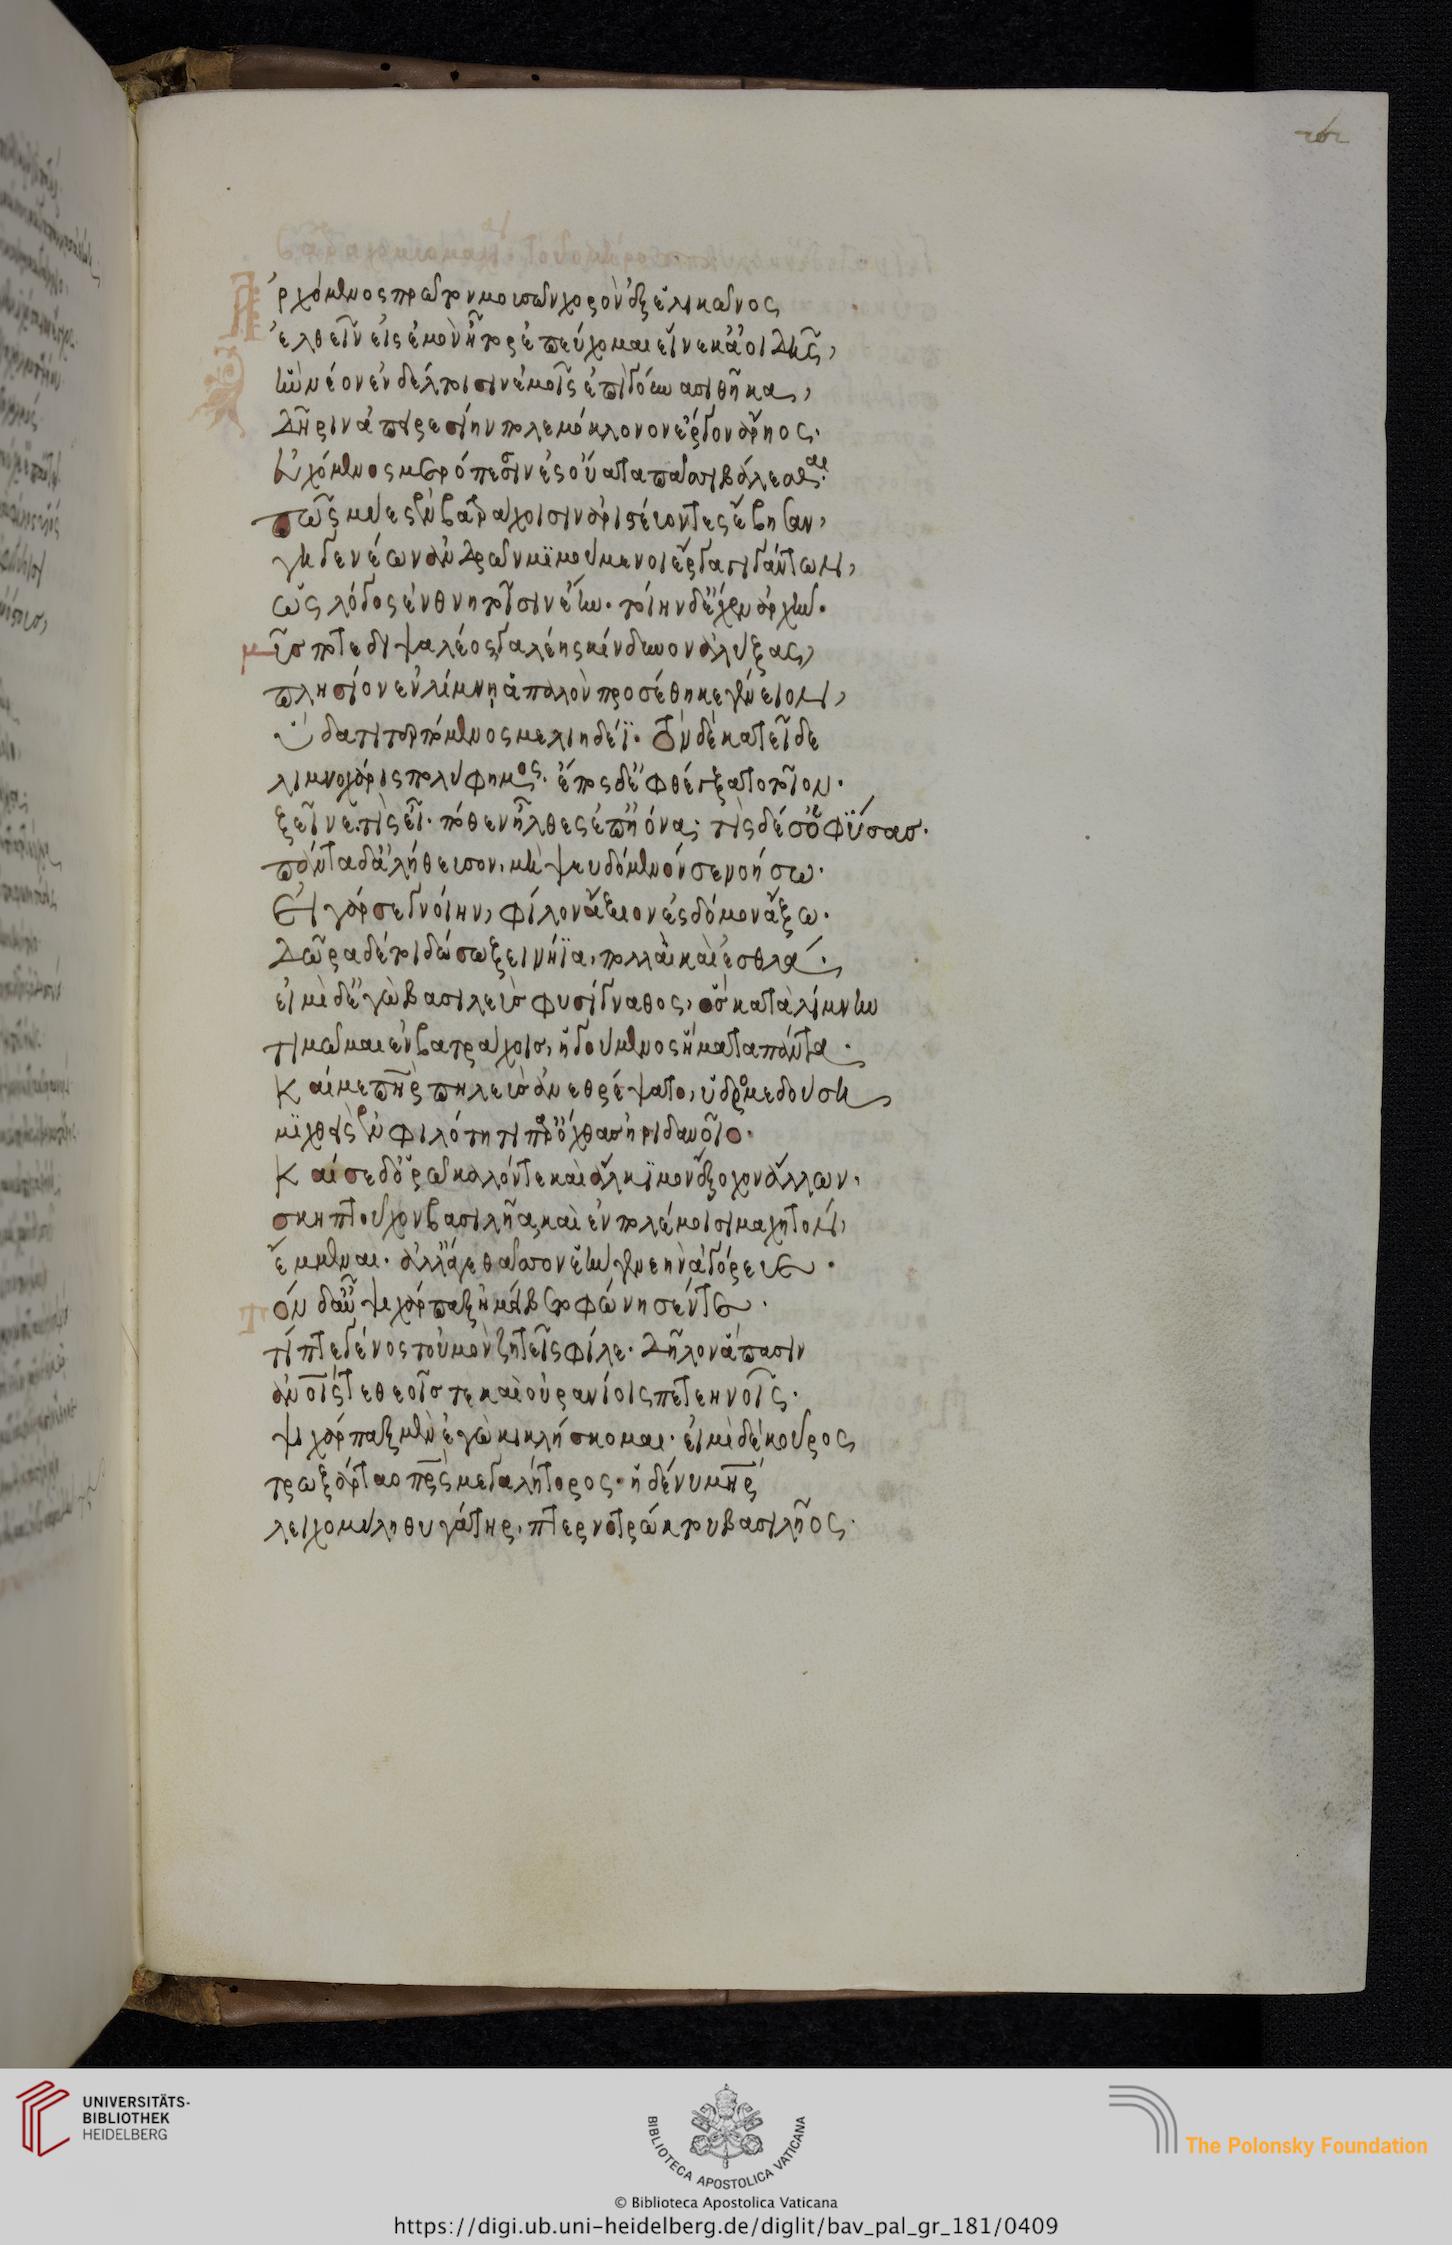 Ἀρχόμενος πρῶτον μουσῶν χορὸν ἐξ ἑλικῶνος
ἐλθεῖν εἰς ἐμὸν ἦτορ ἐπεύχομαι εἵνεκ᾽ ἀοιδῆς,
ἣν νέον ἐν δέλτοισιν ἐμοῖς ἐπὶ γούνασι θῆκα,
δῆριν ἀπειρεσίην πολεμόκλονον ἔργον ἄρηος.
εὐχόμενος μερόπεσσιν ἐς οὔατα πᾶσι βαλέσθαι.
πῶς μύες ἐν βατράχοισιν ἀριστεύοντες ἔβησαν,
γηγενέων ἀνδρῶν μιμούμενοι ἔργα γιγάντων,
ὡς λόγος ἐν θνητοῖσιν ἔην. τοίην δ᾽ ἔχεν ἀρχήν.
μῦς ποτε διψαλέος, γαλέης κίνδυνον ἀλύξας,
πλησίον ἐν λίμνῃ ἁπαλὸν προσέθηκε γένειον,
ὕδατι τερπόμενος μελιηδέϊ. τὸν δὲ κατεῖδε
λιμνοχάρις πολύφημος. ἔπος δ᾽ ἐφθέγξατο τοῖον.
ξεῖνε. τίς εἶ. πόθεν ἦλθες ἐπ᾽ ἠϊόνα; τίς δέ σ᾽ ὁ φύσας.
πάντα δ᾽ ἀλήθευσον, μὴ ψευδόμενόν σε νοήσω.
εἰ γάρ σε γνοίην, φίλον ἄξιον ἐς δόμον ἄξω.
δῶρα δέ τοι δώσω ξεινήϊα, πολλὰ καὶ ἐσθλά.
εἰμὶ δ᾽ ἐγὼ βασιλεὺς φυσίγναθος, ὃς κατὰ λίμνην
τιμῶμαι ἐν βατράχοις, ἡγούμενος ἤματα πάντα.
Καί με πατὴρ πηλεὺς ἀνεθρέψατο, ὑδρομεδούσῃ
μιχθεὶς ἐν φιλότητι παρ᾽ ὄχθας ἠριδανοῖο.
Καί σε δ᾽ ὁρῶ καλόν τε καὶ ἄλκιμον ἔξοχον ἄλλων.
σκηπτοῦχον βασιλῆα, καὶ ἐν πολέμοισι μαχητὴν,
ἔμμεναι. ἀλλ᾽ ἄγε θᾶσσον ἑὴν γενεὴν ἀγόρευε.
Τὸν δ᾽ αὖ ψιχάρπαξ ἠμείβετο φώνησέν τε.
τίπτε γένος τοὐμὸν ζητεῖς φίλε. δῆλον ἅπασιν
ἀνοῖς τε θεοῖς τε καὶ οὐρανίοις πετεηνοῖς.
ψιχάρπαξ μὲν ἐγὼ κικλήσκομαι. εἰμὶ δὲ κοῦρος
τρωξάρταο πρς μεγαλήτορος. ἡ δέ νυ μήτηρ
λειχομύλη θυγάτηρ, πτερνοτρώκτου βασιλῆος.
UNIVERSITÄTS-
BIBLIOTHEK
HEIDELBERG
BIBLIOTECA APOSTOLICA VATICANA
The Polonsky Foundation
© Biblioteca Apostolica Vaticana
https://digi.ub.uni-heidelberg.de/diglit/bav_pal_gr_181/0409